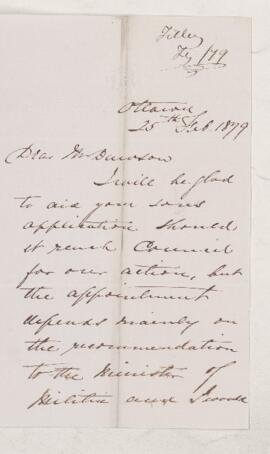 Tilley
Fy 1/79
Ottawa
25th Feb 1879
Dear Mr
I will be glad
to aid your sons
application should
it reach Council
for our action, but
the appointment
depends mainly on
the recommendation
to the Minister of
Militia and I would